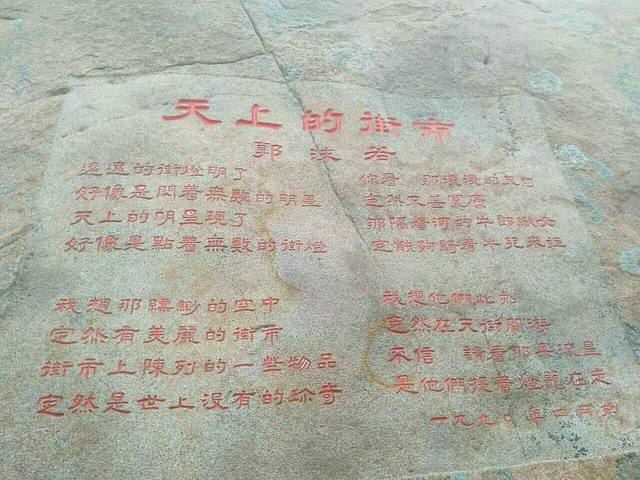 天上的街市
郭沫若
遠遠的街燈明了
好像是閃着無數的明星
天上的明星現了
好像是點着無數的街燈
我想那縹緲的空中
定然有美麗的街市
街市上陳列的一些物品
定然是世上没有的珍奇
你看 那淺淺的天河
定然不甚寬廣
那隔着河的牛郎織女
定能夠騎着牛兒來往
我想他們此刻
定然在天街閑游
不信 請看那朵流星
是他們提着燈籠在走
一九九〇年